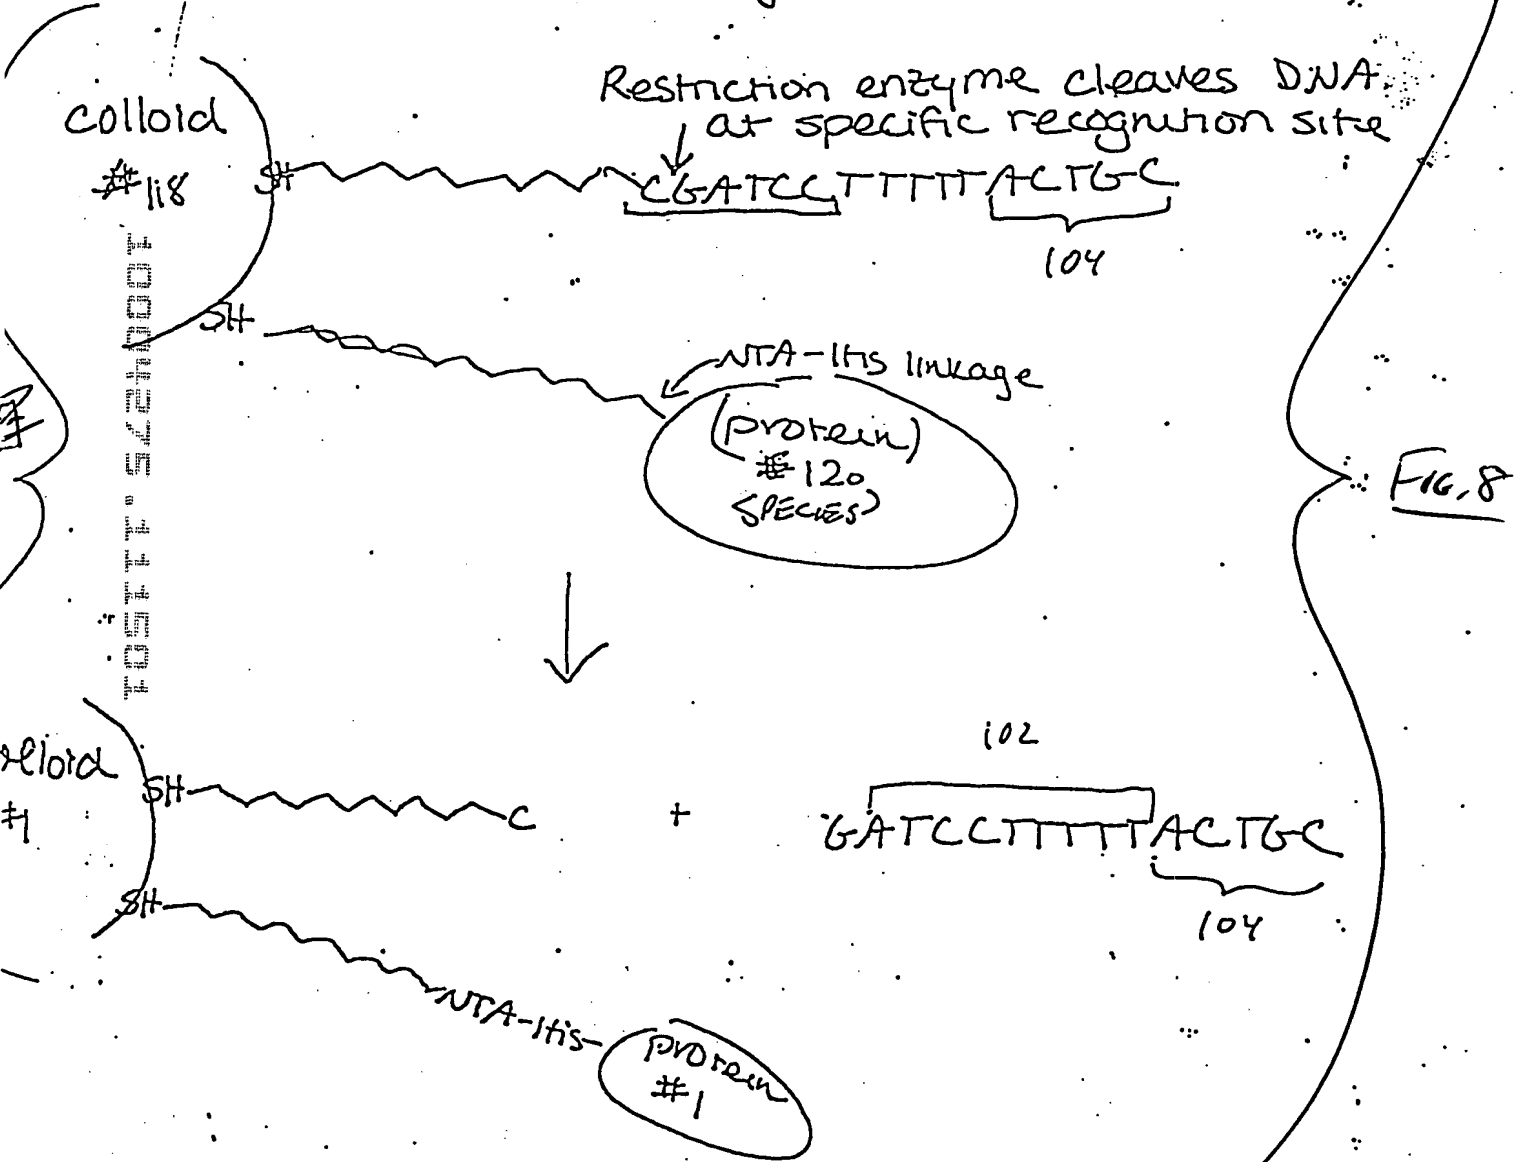 Restriction enzyme cleaves DNA
at specific recognition site
colloid
#118
SH
CGATCCTTTTTACTGC
104
SH
NTA-His linkage
(protein)
#120
SPECIES)
FIG. 8
102
SH
C
+
GATCCTTTTTACTGC
#1
104
SH
NTA-His-
protein
#1